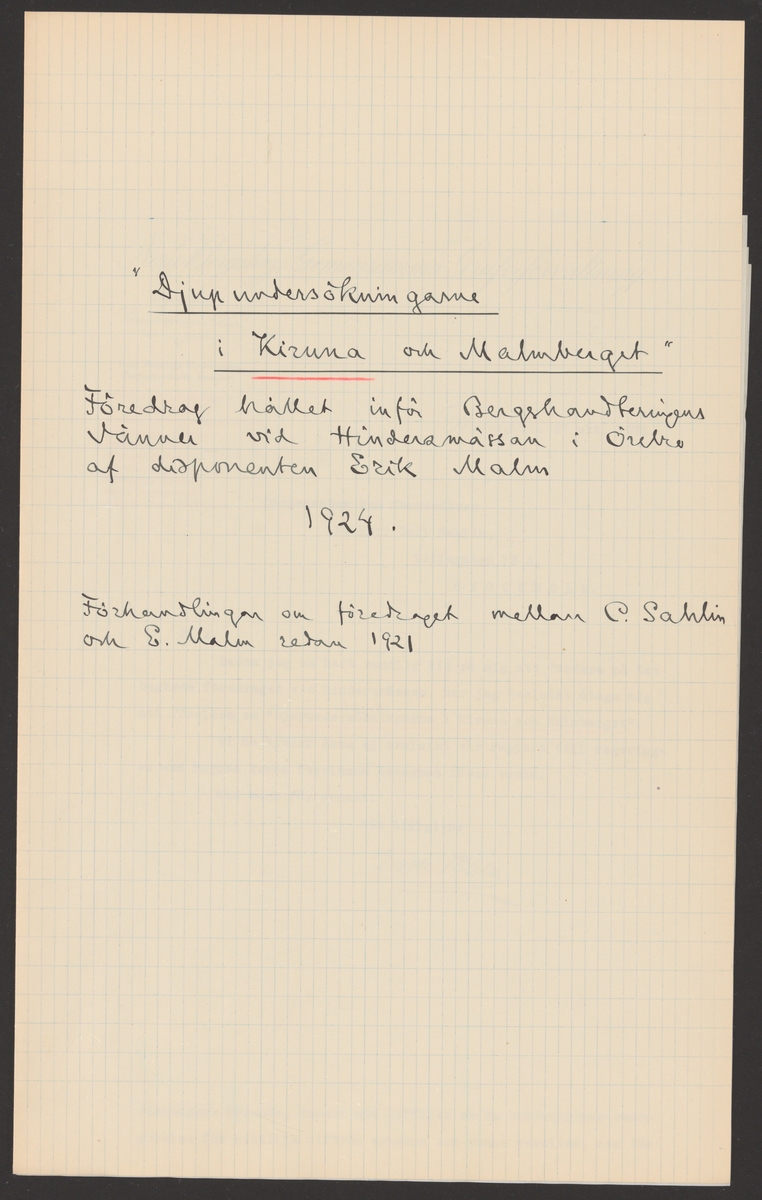 "Djupundersökningarne
i Kiruna och Malmberget"
Föredrag hållet inför Bergshandteringens
Vänner vid Hindersmässan i Örebro
af disponenten Erik Malm
1924.
Förhandlingar om föredraget mellan C. Sahlin
och E. Malm redan 1921